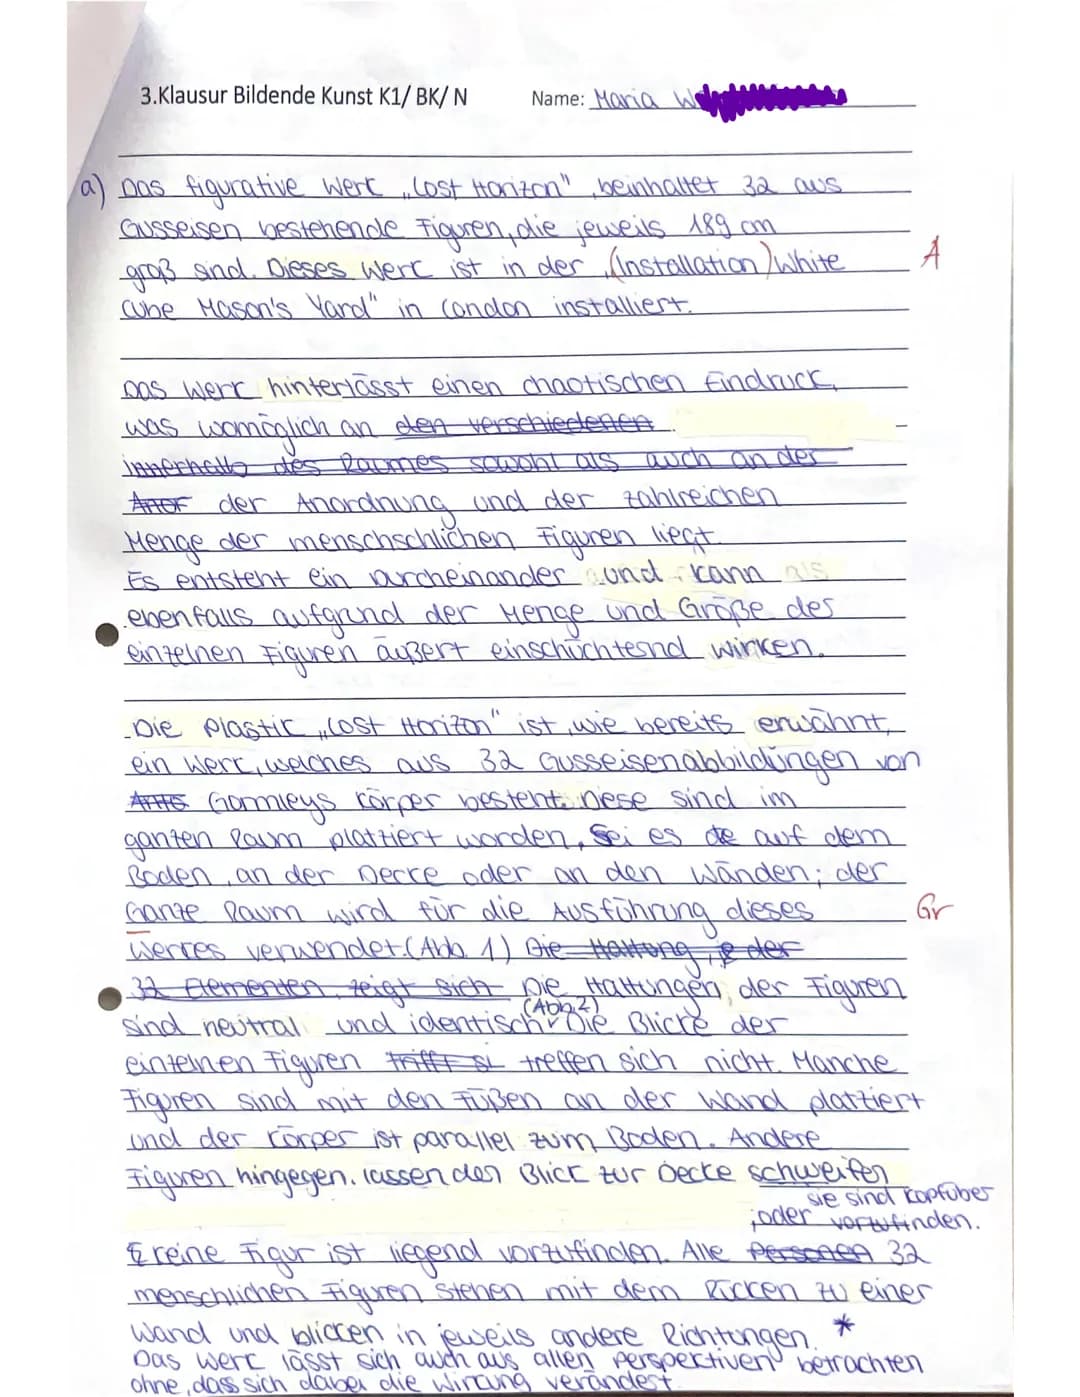 3.Klausur Bildende Kunst K1/ BK/ N Name: Maria W
a) Das figurative Werk „Lost Horizon", beinhaltet 32 aus
Gusseisen bestehende Figuren, die jeweils 189 cm
groß sind. Dieses Werk ist in der „(Installation) White A
Cube Mason's Yard" in London installiert.
Das Werk hinterlässt einen chaotischen Eindruck,
was womöglich an den verschiedenen
innerhalb des Raumes sowohl als auch an der
der Anordnung und der zahlreichen
Menge der menschschlichen Figuren liegt.
Es entsteht ein Durcheinander und kann als
ebenfalls aufgrund der Menge und Größe des
einzelnen Figuren äußert einschüchtesnd wirken.
Die Plastik „Lost Horizon" ist, wie bereits erwähnt,
ein Werk, welches aus 32 Gusseisenabbildungen von
Gormleys Körper besteht. Diese sind im
ganzen Raum plattiert worden, Sei es auf dem
Boden, an der Decke oder an den Wänden; der
Ganze Raum wird für die Ausführung dieses Gr
Werkes verwendet. (Abb. 1) Die Haltung, der
32 Elementen, zeigt sich Die Haltungen, der Figuren
(Abb 2)
sind neutral und identisch. Die Blicke der
einzelnen Figuren trifft si treffen sich nicht. Manche
Figuren sind mit den Füßen an der Wand plattiert
und der Körper ist parallel zum Boden. Andere
Figuren hingegen, lassen den Blick zur Decke schweifen
sie sind kopfüber
;oder vorzufinden.
keine Figur ist liegend vorzufinden. Alle Personen 32
menschlichen Figuren stehen mit dem Rücken zu einer
Wand und blicken in jeweils andere Richtungen. *
Das Werk lässt sich auch aus allen Perspektiven betrachten
ohne, dass sich dabei die Wirkung verändert